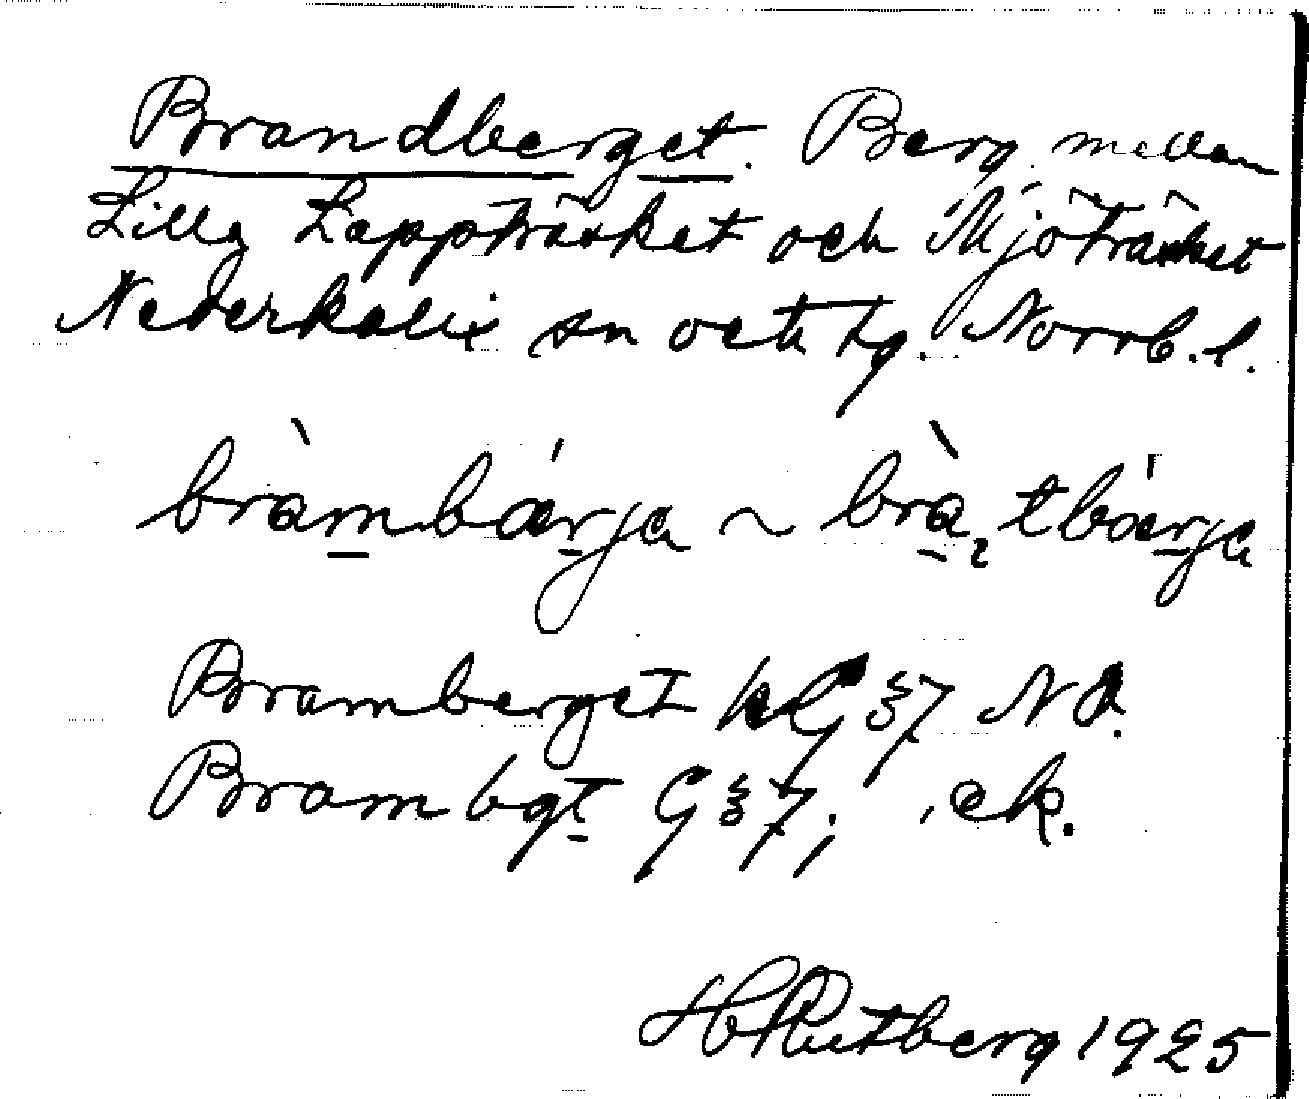 Brandberget. Berg mellan
Lilla Lappträsket och Mjöträsket
Nederkalix sn och tg. Norrb. l.
bràmbǽrja ~ bràtbǽrja
Bramberget G 37 N
Brambgt G 37; ek.
H Rutberg 1925